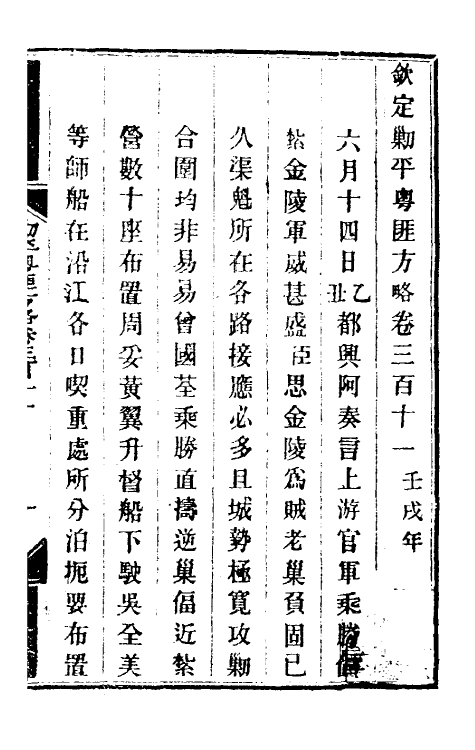 欽定剿平粵匪方略卷三百十一 壬戌年
六月十四日乙丑都興阿奏言上游官軍乘勝偪
紮金陵軍威甚盛臣思金陵爲賊老巢負固已
久渠魁所在各路接應必多且城勢極寬攻剿
合圍均非易易曾國荃乘勝直擣逆巢偪近紮
營數十座布置周妥黃翼升督船下駛吳全美
等師船在沿江各日喫重處所分泊扼要布置